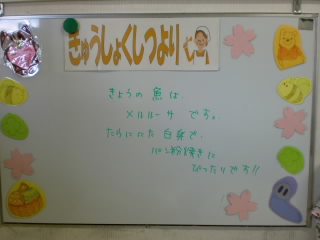 きゅうしょくしつより
きょうの 魚は
メルルーサ です。
たらににた 白身で、
パン粉焼きに
ぴったりです!!